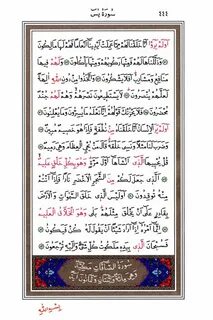 سورة يس
٤٤٤
أَوَلَمْ يَرَوْا أَنَّا خَلَقْنَا لَهُمْ مِمَّا عَمِلَتْ أَيْدِينَا أَنْعَامًا فَهُمْ لَهَا مَالِكُونَ
وَذَلَّلْنَاهَا لَهُمْ فَمِنْهَا رَكُوبُهُمْ وَمِنْهَا يَأْكُلُونَ وَلَهُمْ فِيهَا
مَنَافِعُ وَمَشَارِبُ أَفَلَا يَشْكُرُونَ وَاتَّخَذُوا مِنْ دُونِ اللهِ آلِهَةً
لَعَلَّهُمْ يُنْصَرُونَ لَا يَسْتَطِيعُونَ نَصْرَهُمْ وَهُمْ لَهُمْ جُنْدٌ
مُحْضَرُونَ فَلَا يَحْزُنْكَ قَوْلُهُمْ إِنَّا نَعْلَمُ مَا يُسِرُّونَ وَمَا يُعْلِنُونَ
أَوَلَمْ يَرَ الْإِنْسَانُ أَنَّا خَلَقْنَاهُ مِنْ نُطْفَةٍ فَإِذَا هُوَ خَصِيمٌ مُبِينٌ
وَضَرَبَ لَنَا مَثَلًا وَنَسِيَ خَلْقَهُ قَالَ مَنْ يُحْيِي الْعِظَامَ وَهِيَ رَمِيمٌ
قُلْ يُحْيِيهَا الَّذِي أَنْشَأَهَا أَوَّلَ مَرَّةٍ وَهُوَ بِكُلِّ خَلْقٍ عَلِيمٌ
الَّذِي جَعَلَ لَكُمْ مِنَ الشَّجَرِ الْأَخْضَرِ نَارًا فَإِذَا أَنْتُمْ
مِنْهُ تُوقِدُونَ أَوَلَيْسَ الَّذِي خَلَقَ السَّمَاوَاتِ وَالْأَرْضَ
بِقَادِرٍ عَلَى أَنْ يَخْلُقَ مِثْلَهُمْ بَلَى وَهُوَ الْخَلَّاقُ الْعَلِيمُ
إِنَّمَا أَمْرُهُ إِذَا أَرَادَ شَيْئًا أَنْ يَقُولَ لَهُ كُنْ فَيَكُونُ
فَسُبْحَانَ الَّذِي بِيَدِهِ مَلَكُوتُ كُلِّ شَيْءٍ وَإِلَيْهِ تُرْجَعُونَ
سورة الصافات مكية